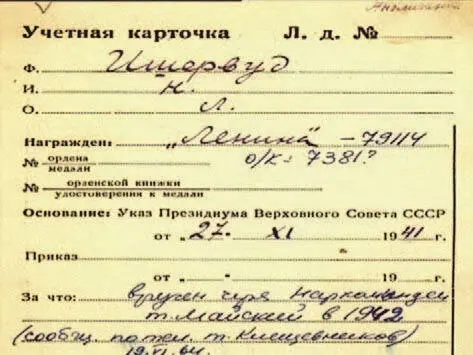 Учетная карточка Л. д. №
Ф. Ишервуд
И. Н.
О. Л.
Награжден: "Ленина" – 79114
№ ордена медали о/к = 7381?
№ орденской книжки удостоверения к медали
Основание: Указ Президиума Верховного Совета СССР
от „ 27. " XI 1941 г.
Приказ
от „ - " 19 г.
За что: вручен через
т. Майский в 1942
(сообщ. т.